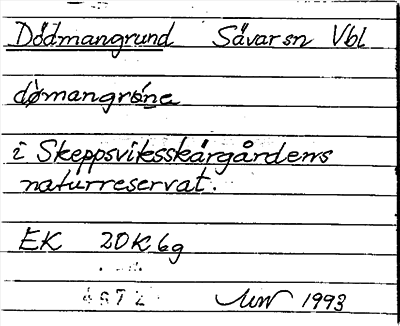 Dödmangrund Sävar sn Vbl
dö̀mangróne
i Skeppsviksskärgårdens
naturreservat.
EK 20K 6g
4672 1993